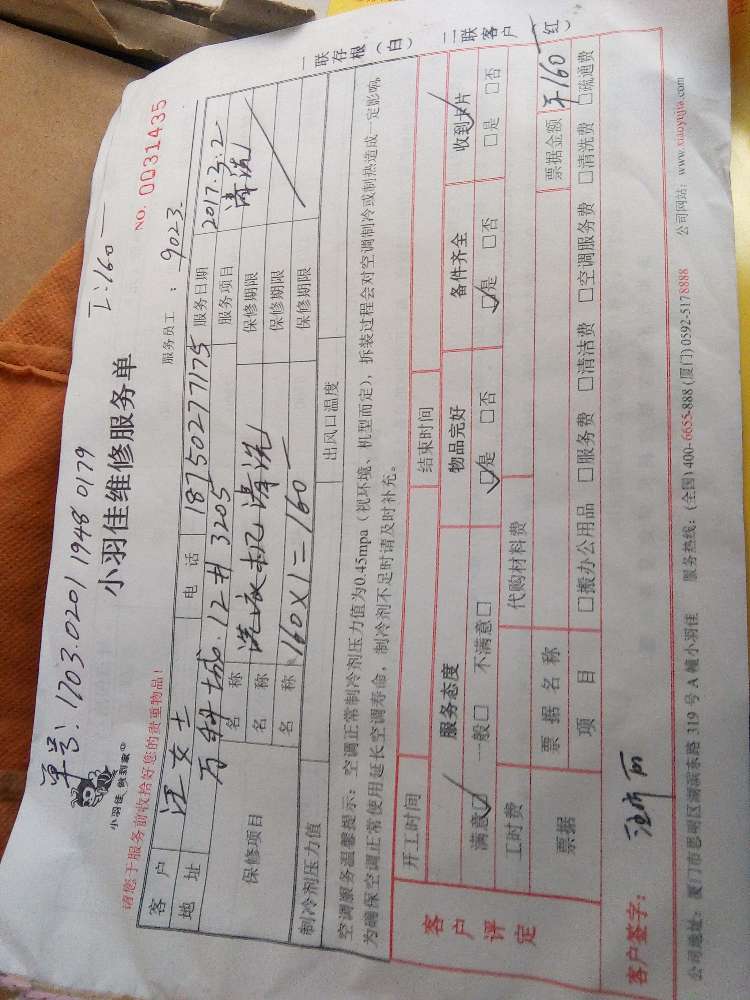 单号:1703.0201 1948 0179
工:160
小羽佳 做到家
小羽佳维修服务单
NO. 0031435
请您于服务前收拾好您的贵重物品!
服务员工: 9023
客户 汪女士 电话 18750277175 服务日期 2017.3.2
地址 万科城.12# 3205 服务项目 清洗
保修项目
名称 洗衣机清洗 保修期限
名称 160×1=160 保修期限
名称 保修期限
制冷剂压力值 出风口温度
空调服务温馨提示:空调正常制冷剂压力值为0.45mpa(视环境、机型而定),拆装过程会对空调制冷或制热造成一定影响。
为确保空调正常使用延长空调寿命,制冷剂不足时请及时补充。
一联存根(白) 二联客户(红)
客户评定
开工时间 结束时间
服务态度 物品完好 备件齐全 收到卡片
满意□ 一般□ 不满意□ □是 □否 □是 □否 □是 □否
工时费 代购材料费
票据 票据名称 票据金额 ¥160
项目 □搬办公用品 □服务费 □清洁费 □空调服务费 □清洗费 □疏通费
客户签字:
公司地址:厦门市思明区湖滨东路319号A幢小羽佳 服务热线:(全国)400-6655-888 (厦门)0592-5178888 公司网站:www.xiaoyujia.com